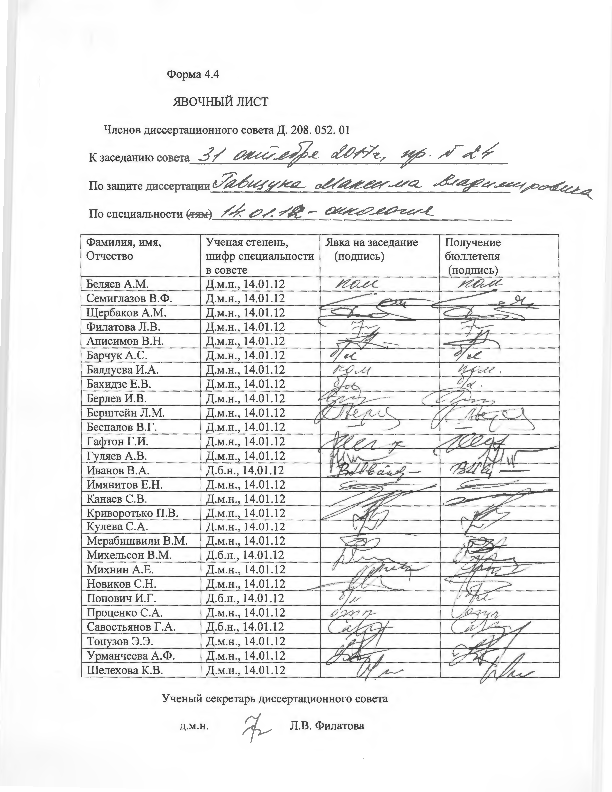 Форма 4.4
ЯВОЧНЫЙ ЛИСТ
Членов диссертационного совета Д. 208. 052. 01
К заседанию совета 31 октября 2017г, пр. №24
По защите диссертации Гавщука Максима Владимировича
По специальности (тям) 14.01.12 - онкология
Фамилия, имя, Отчество Ученая степень, шифр специальности в совете Явка на заседание (подпись) Получение бюллетеня (подпись)
Беляев А.М. Д.м.н., 14.01.12 ком ком
Семиглазов В.Ф. Д.м.н., 14.01.12
Щербаков А.М. Д.м.н., 14.01.12
Филатова Л.В. Д.м.н., 14.01.12
Анисимов В.Н. Д.м.н., 14.01.12
Барчук А.С. Д.м.н., 14.01.12
Балдуева И.А. Д.м.н., 14.01.12 ком ком.
Бахидзе Е.В. Д.м.н., 14.01.12
Берлев И.В. Д.м.н., 14.01.12
Берштейн Л.М. Д.м.н., 14.01.12
Беспалов В.Г. Д.м.н., 14.01.12
Гафтон Г.И. Д.м.н., 14.01.12
Гуляев А.В. Д.м.н., 14.01.12
Иванов В.А. Д.б.н., 14.01.12
Имянитов Е.Н. Д.м.н., 14.01.12
Канаев С.В. Д.м.н., 14.01.12
Криворотько П.В. Д.м.н., 14.01.12
Кулева С.А. Д.м.н., 14.01.12
Мерабишвили В.М. Д.м.н., 14.01.12
Михельсон В.М. Д.б.н., 14.01.12
Михнин А.Е. Д.м.н., 14.01.12
Новиков С.Н. Д.м.н., 14.01.12
Попович И.Г. Д.б.н., 14.01.12
Проценко С.А. Д.м.н., 14.01.12
Савостьянов Г.А. Д.б.н., 14.01.12
Топузов Э.Э. Д.м.н., 14.01.12
Урманчеева А.Ф. Д.м.н., 14.01.12
Шелехова К.В. Д.м.н., 14.01.12
Ученый секретарь диссертационного совета
д.м.н. Л.В. Филатова